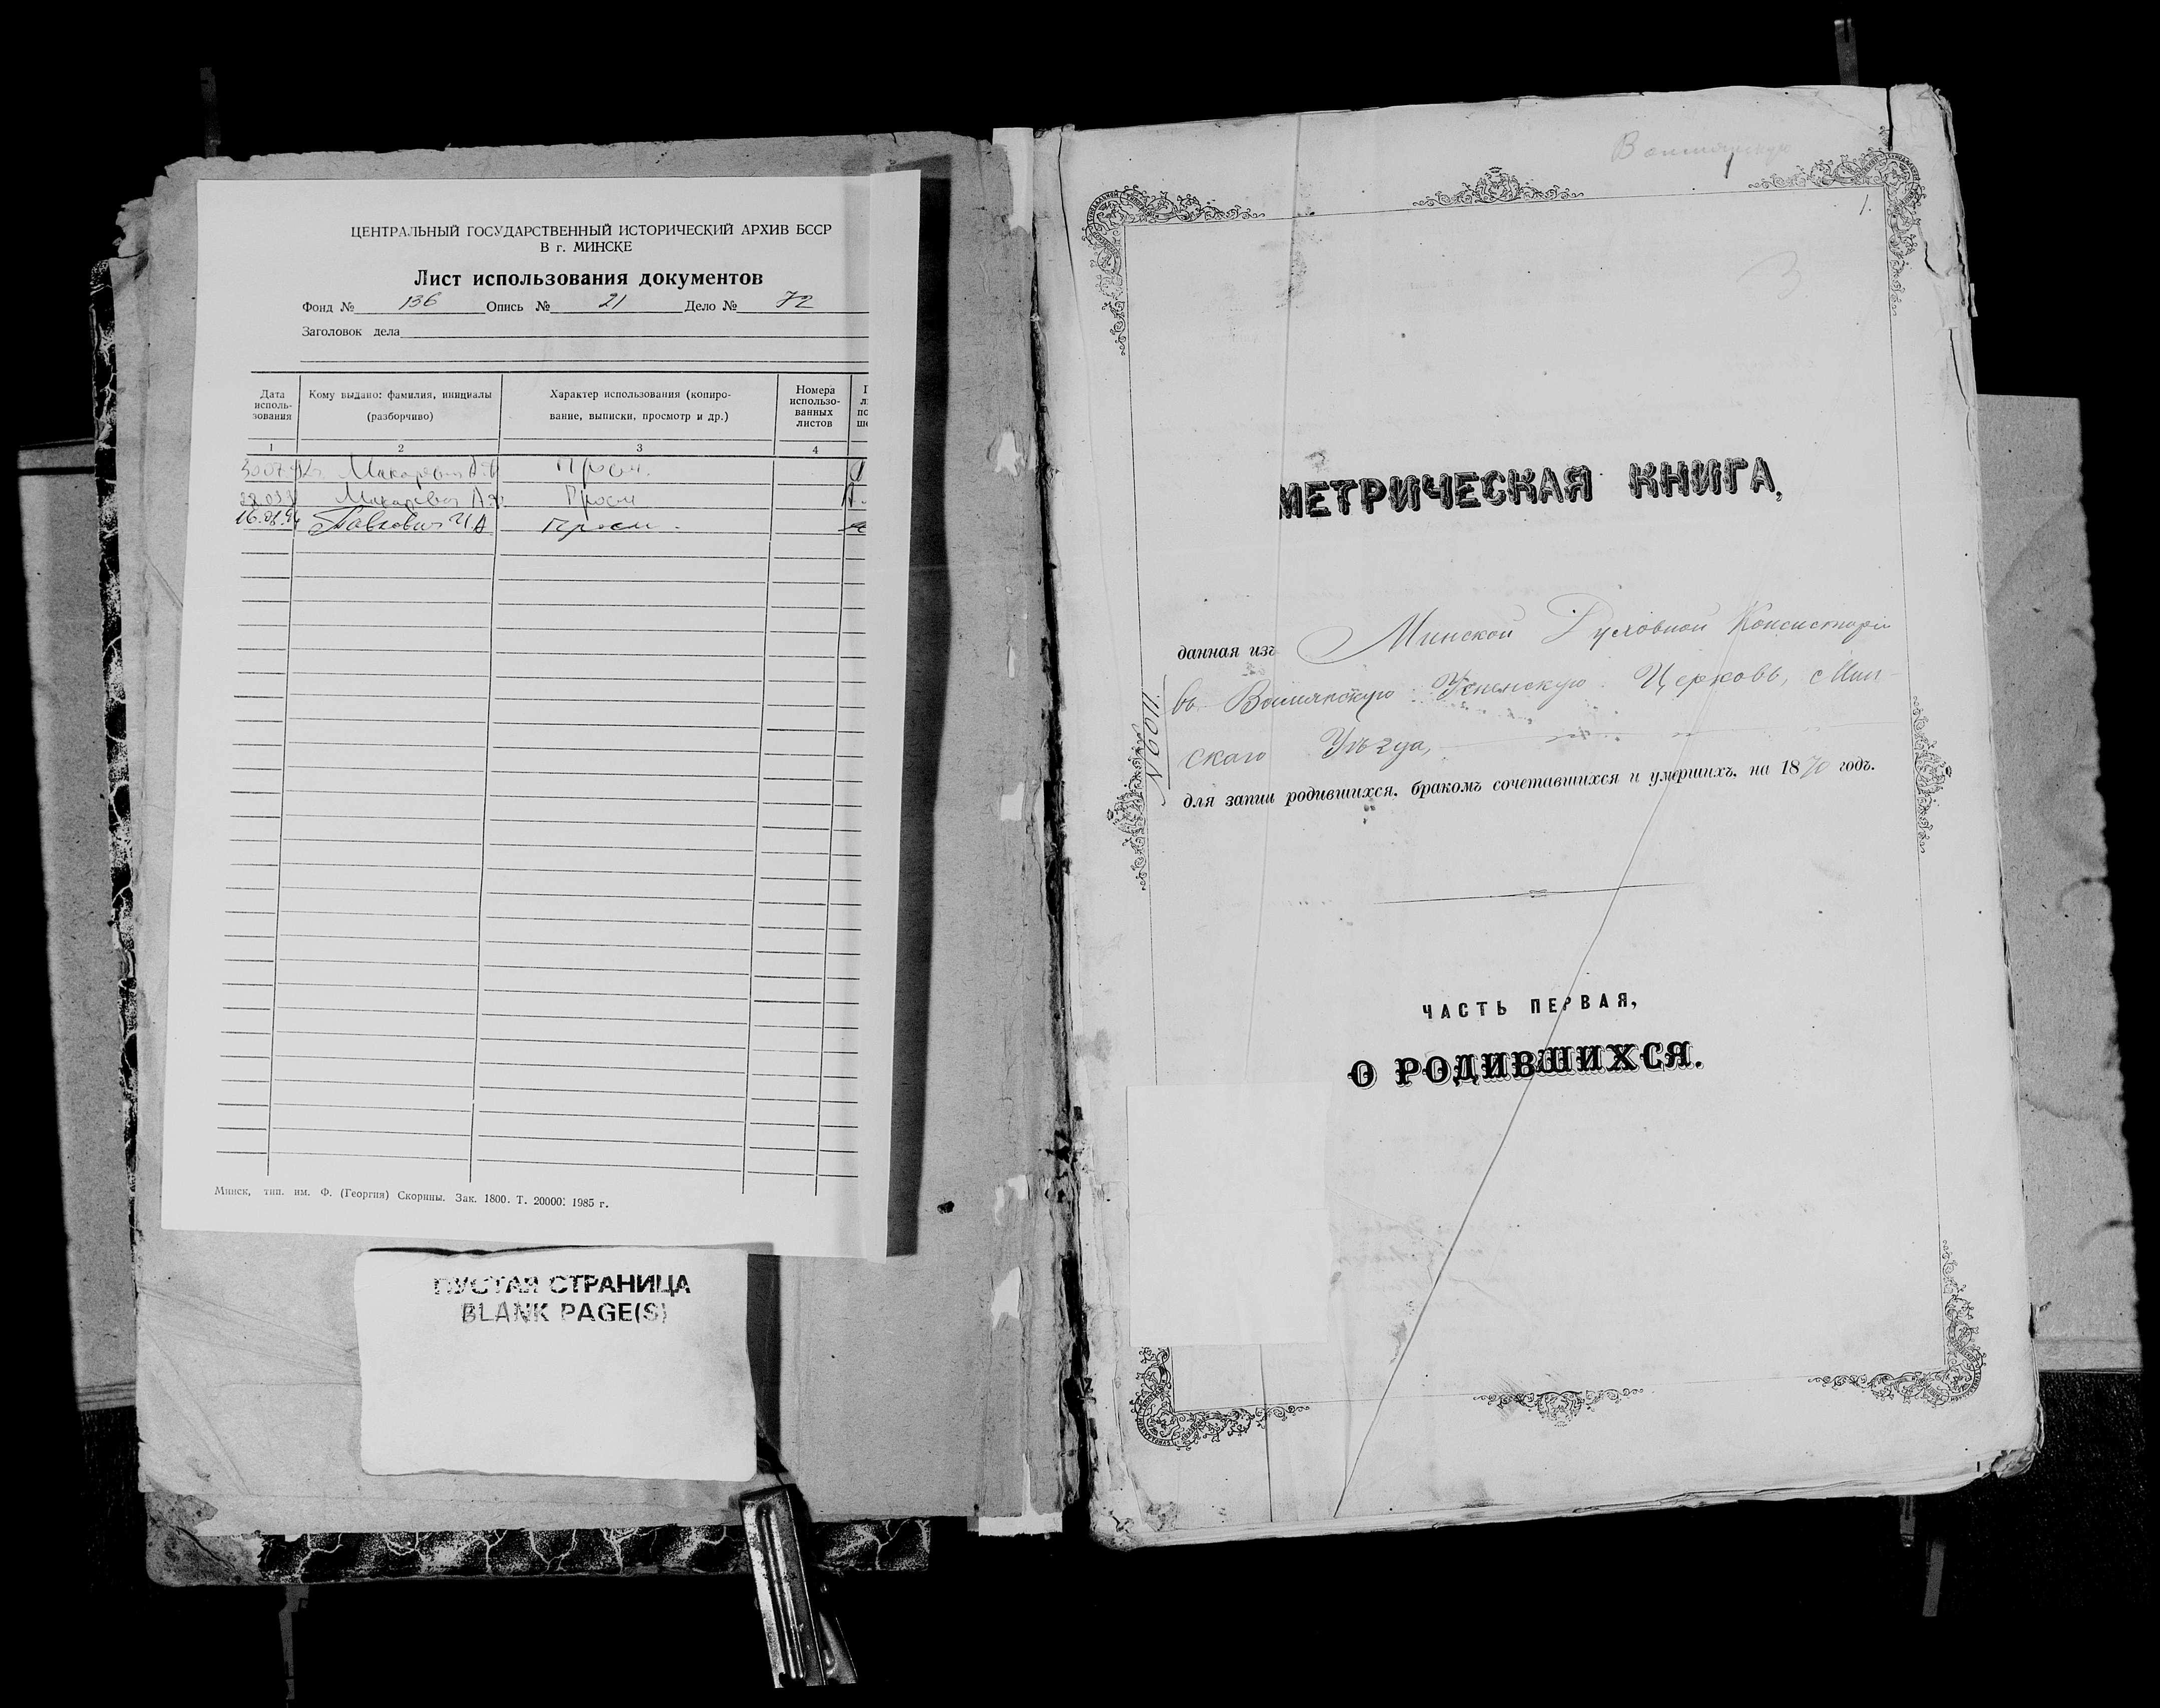 ЦЕНТРАЛЬНЫЙ ГОСУДАРСТВЕННЫЙ ИСТОРИЧЕСКИЙ АРХИВ БССР
В г. МИНСКЕ
Лист использования документов
Фонд № 136 Опись № 21 Дело № 72
Заголовок дела
Дата исполь- зования
Кому выдано: фамилия, инициалы (разборчиво)
Характер использования (копиро- вание, выписки, просмотр и др.)
Номера использо- ванных листов
1 2 3 4
Макаревич Просм.
Макаревич Просм
16.08.94 Павлович И А Просм.
Минск, тип. им. Ф. (Георгия) Скорины. Зак. 1800. Т. 20000. 1985 г.
ПУСТАЯ СТРАНИЦА
BLANK PAGE(S)
1
1.
3
МЕТРИЧЕСКАЯ КНИГА,
данная изъ Минской Духовной Консисторіи
въ Успенскую Церковь, Мин-
скаго Уѣзда,
для запии родившихся, бракомъ сочетавшихся и умершихъ, на 1870 годъ.
ЧАСТЬ ПЕРВАЯ,
О РОДИВШИХСЯ.